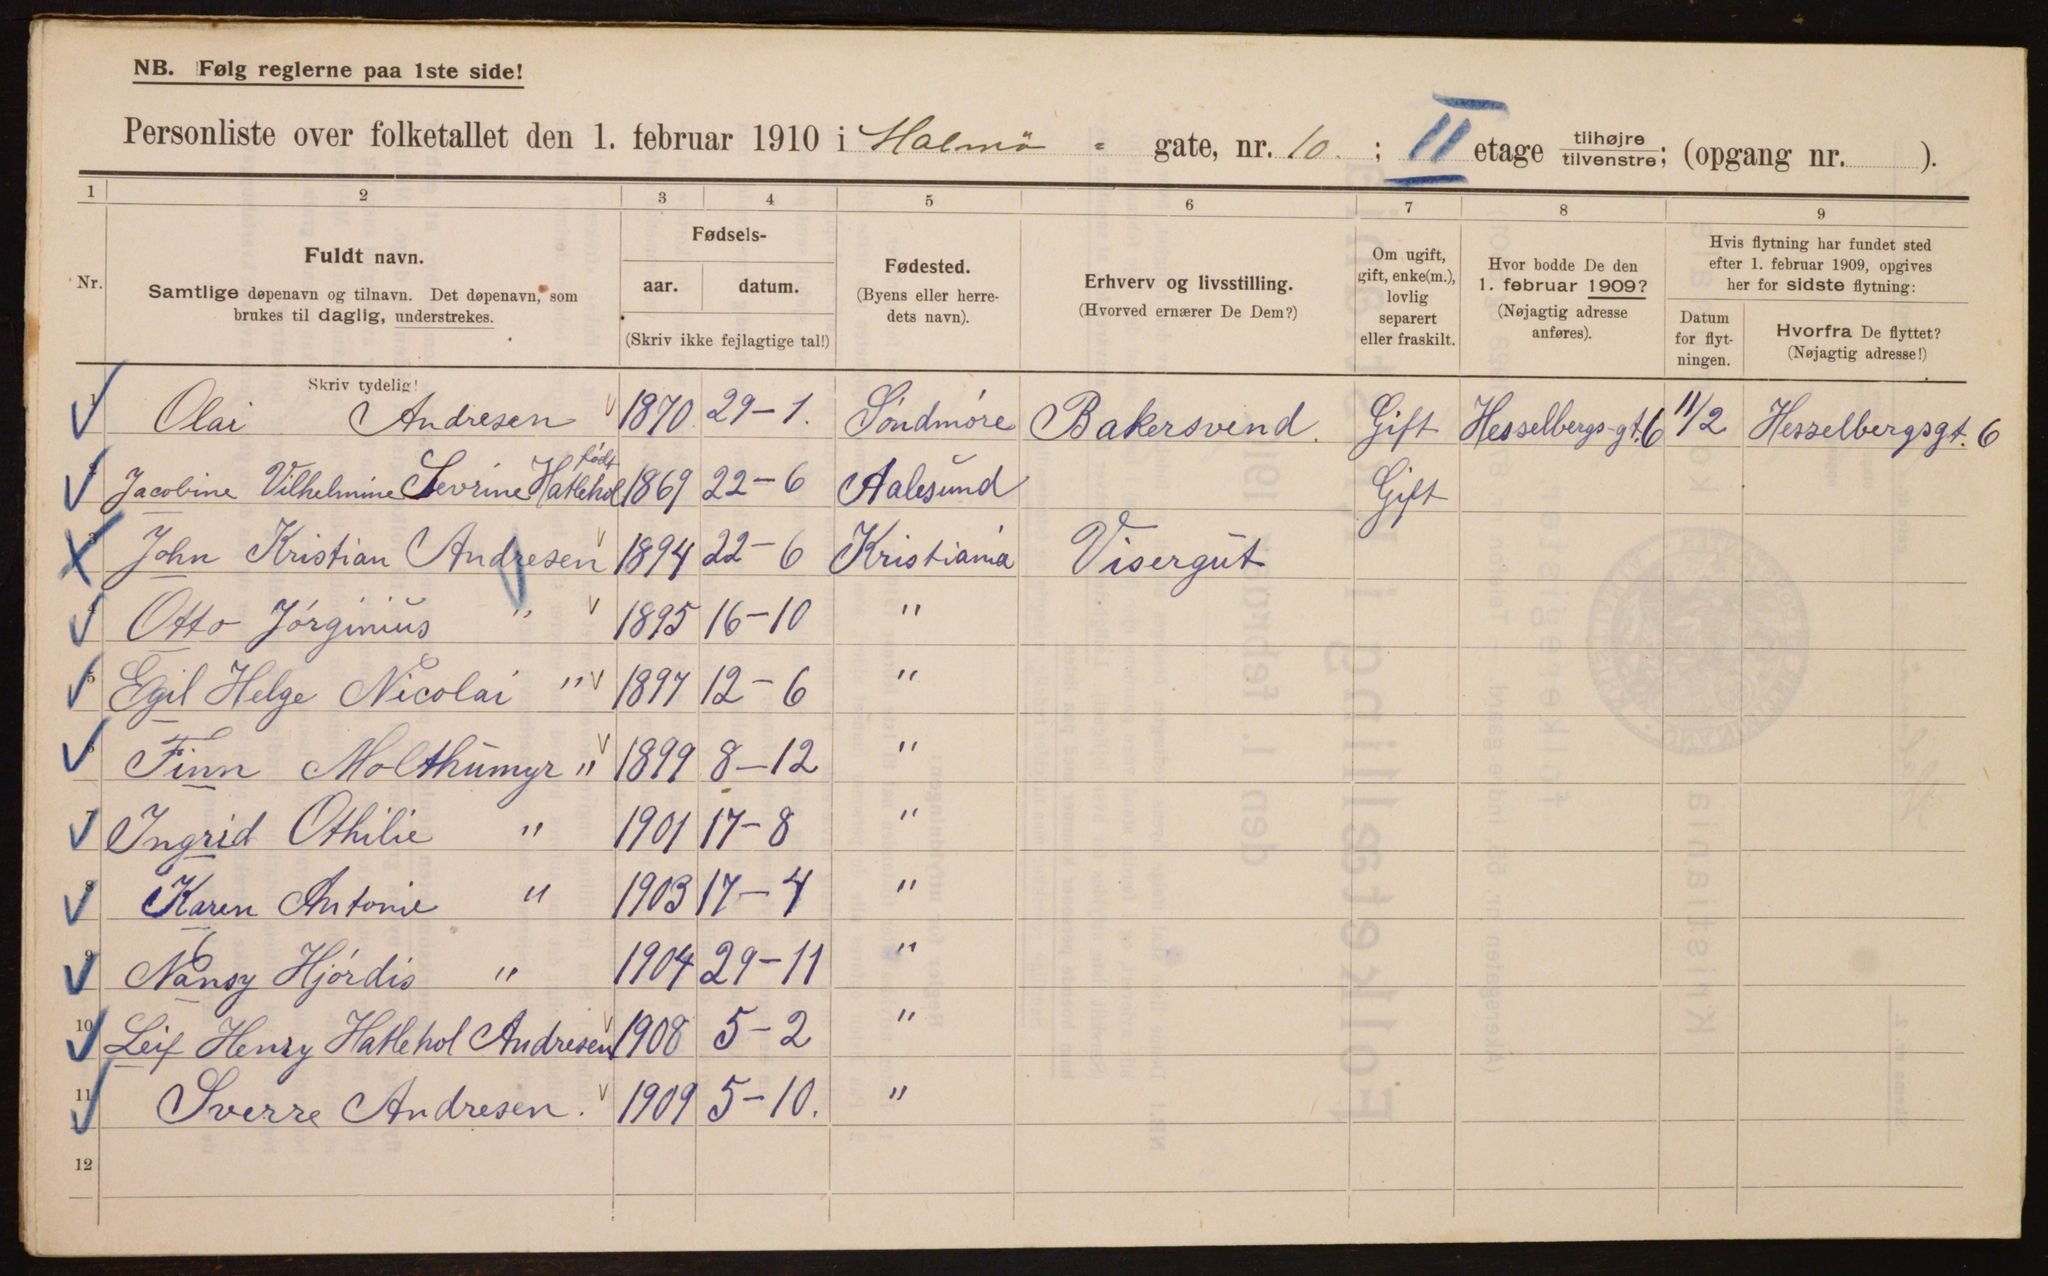 NB. Følg reglerne paa 1ste side!
Personliste over folketallet den 1. februar 1910 i Malmö - gate, nr. 10. ; II etage tilhøjre tilvenstre; (opgang nr. ).
1 2 3 4 5 6 7 8 9
Nr.
Fuldt navn.
Samtlige døpenavn og tilnavn. Det døpenavn, som
brukes til daglig, understrekes.
Skriv tydelig!
Fødsels-
aar. datum.
(Skriv ikke fejlagtige tal!)
Fødested.
(Byens eller herre-
dets navn).
Erhverv og livsstilling.
(Hvorved ernærer De Dem?)
Om ugift,
gift, enke(m.),
lovlig
separert
eller fraskilt.
Hvor bodde De den
1. februar 1909?
(Nøjagtig adresse
anføres).
Hvis flytning har fundet sted
efter 1. februar 1909, opgives
her for sidste flytning:
Datum
for flyt-
ningen.
Hvorfra De flyttet?
(Nøjagtig adresse!)
1 Olai Andresen 1870 29-1. Söndmöre Bakersvend. Gift Hesselbergs-gt. 6 11/2 Hesselbergsgt. 6
født
2 Jacobine Vilhelmine Sevrine Hatlehol 1869 22-6 Aalesund Gift
3 John Kristian Andresen 1894 22-6 Kristiania Visergut
4 Otto Jörginius " 1895 16-10 "
5 Egil Helge Nicolai " 1897 12-6 "
6 Finn Molthumyr " 1899 8-12 "
7 Ingrid Othilie " 1901 17-8 "
8 Karen Antonie " 1903 17-4 "
9 Nansy Hjórdis " 1904 29-11 "
10 Leif Henry Hatlehol Andresen 1908 5-2 "
11 Sverre Andresen. 1909 5-10. "
12